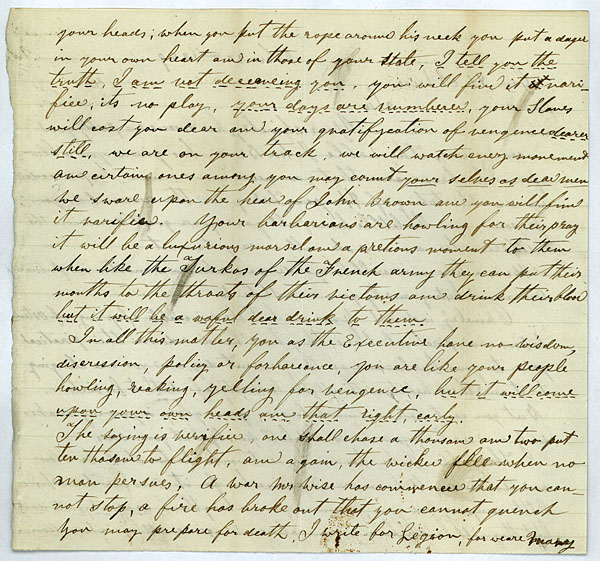 your heads; when you put the rope around his neck you put a dager
in your own heart am in those of your state, I tell you the
truth, I am not deceeving you, you will fin it varif-
fice, its no play, your days are numberee, your Slaves
will cost you dear am your gratifycation of vengence dearer
still, we are on your track, we will watch every movement
am certain ones among you may count your selves as dead men
we sware upon the hear of John Brown am you will fin
it varifie. Your barbarians are howling for their pray
it will be a luxurious morsel am a pretious moment to them
when like the Turkos of the French army they can put their
mouths to the throats of theirs victoms am drink their bloo
but it will be a woful dear drink to them
In all this matter, you as the Executive have no wisdom,
discression, policy or forbarance, you are like your people
howling, reaking, yelling for vengence, but it will come
upon your own heads am that right early.
The saying is verifie, one shall chase a thousan am two put
ten thosam to flight, am again, the wicked flee when no
man persues, A war Mr Wise has commence that you can-
not stop, a fire has broke out that you cannot quench
you may prepare for death, I write for Legion, for we are many